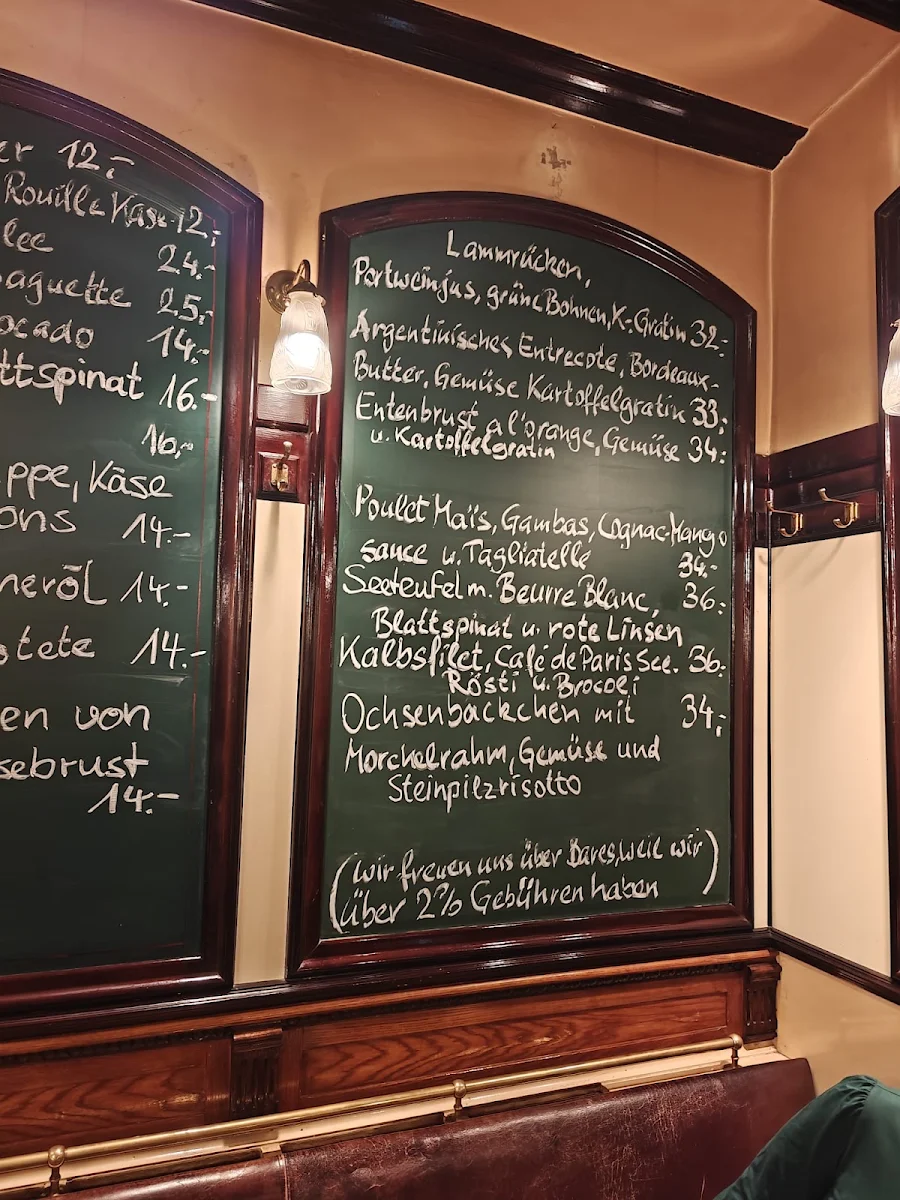 er 12.-
Rouille Käse 12.-
lee 24.-
aguette 25.-
ocado 14.-
ttspinat 16.-
16.-
ppe, Käse
ons 14.-
neröl 14.-
stete 14.-
en von
sebrust
14.-
Lammrücken,
Portweinjus, grüne Bohnen, K.-Gratin 32.-
Argentinisches Entrecote, Bordeaux-
Butter, Gemüse Kartoffelgratin 33.-
Entenbrust a l'orange, Gemüse 34.-
u. Kartoffelgratin
Poulet Maïs, Gambas, Cognac-Mango
sauce u. Tagliatelle 34.-
Seeteufel m. Beurre Blanc, 36.-
Blattspinat u. rote Linsen
Kalbsfilet, Café de Paris See. 36.-
Rösti u. Brocoli
Ochsenbäckchen mit 34.-
Morchelrahm, Gemüse und
Steinpilzrisotto
(wir freuen uns über Bares, weil wir)
(über 2% Gebühren haben